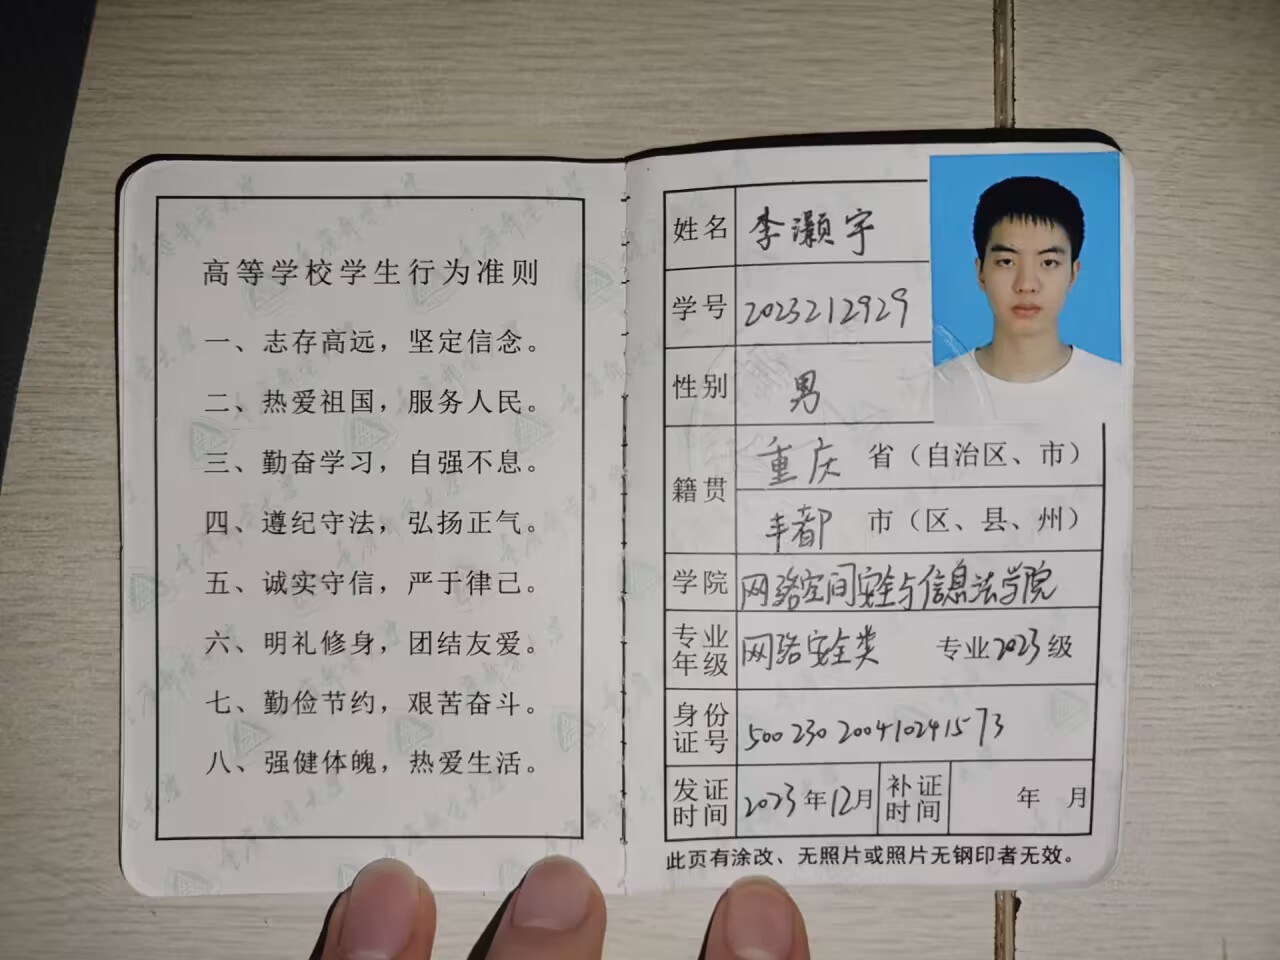 高等学校学生行为准则
一、志存高远，坚定信念。
二、热爱祖国，服务人民。
三、勤奋学习，自强不息。
四、遵纪守法，弘扬正气。
五、诚实守信，严于律己。
六、明礼修身，团结友爱。
七、勤俭节约，艰苦奋斗。
八、强健体魄，热爱生活。
姓名 李灏宇
学号 2023212929
性别 男
籍贯
重庆 省（自治区、市）
丰都 市（区、县、州）
学院 网络空间安全与信息法学院
专业年级 网络安全类 专业2023级
身份证号 500230200410241573
发证时间 2023年12月 补证时间 年 月
此页有涂改、无照片或照片无钢印者无效。